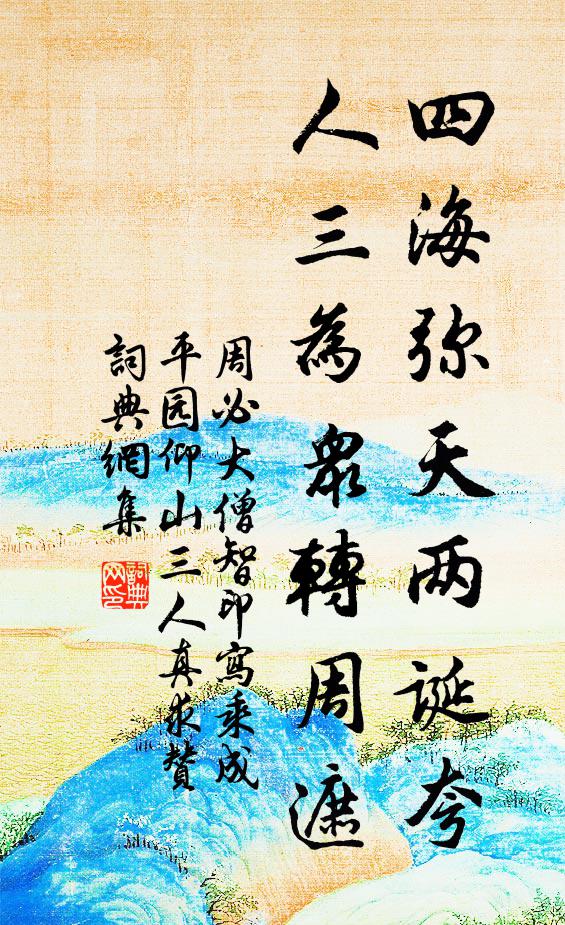 四海弥天两诞夸
人三為眾轉周遮
周必大僧智印寫乘成
平园仰山三人真求贊
詞典網集
詞典网印